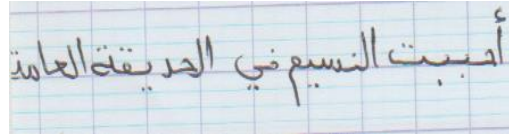 أحببت النسيم في الحديقة العامة